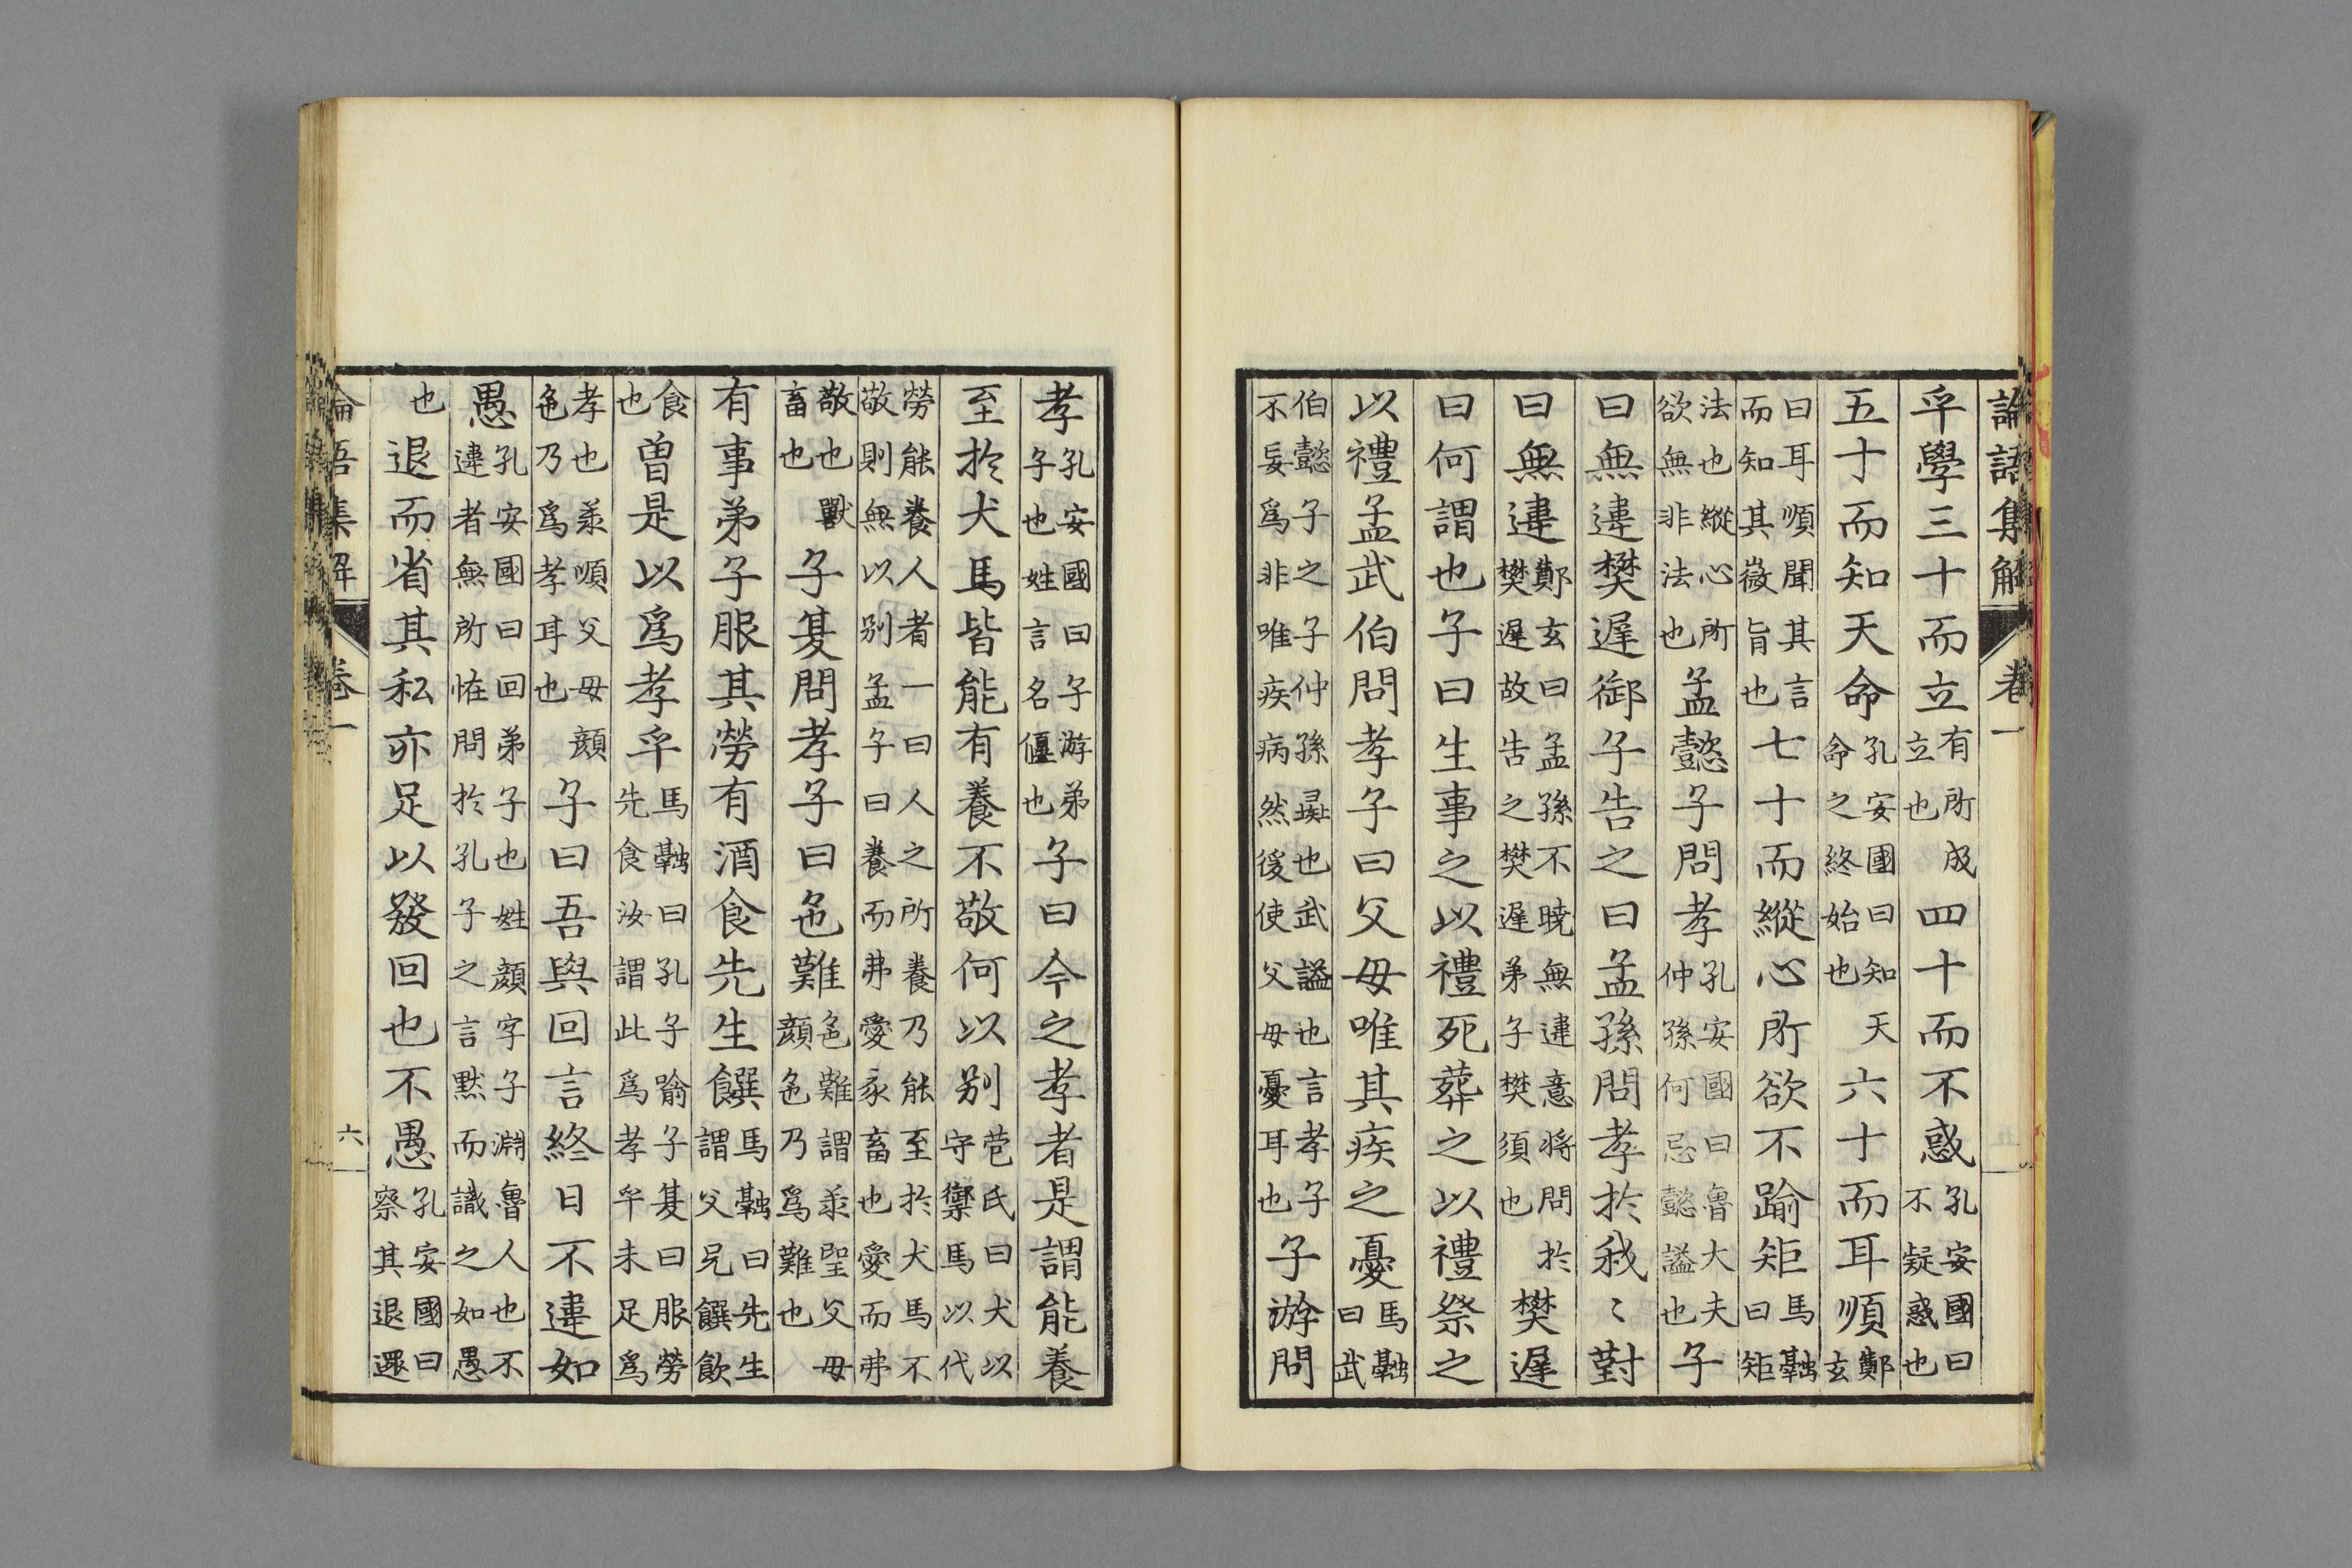 論語集解　卷一
乎學三十而立有所成立也四十而不惑孔安國曰不疑惑也
五十而知天命孔安國曰知天命之終始也六十而耳順鄭玄
曰耳順聞其言而知其微旨也七十而縱心所欲不踰矩馬融曰矩
法也縱心所欲無非法也孟懿子問孝孔安國曰魯大夫仲孫何忌懿謚也子
曰無違樊遲御子告之曰孟孫問孝於我〻對
曰無違鄭玄曰孟孫不曉無違意將問於樊遲故告之樊遲弟子樊須也樊遲
曰何謂也子曰生事之以禮死葬之以禮祭之
以禮孟武伯問孝子曰父母唯其疾之憂馬融曰武
伯懿子之子仲孫彘也武謚也言孝子不妄爲非唯疾病然後使父母憂耳也子游問
孝孔安國曰子游弟子也姓言名偃也子曰今之孝者是謂能養
至於犬馬皆能有養不敬何以别苞氏曰犬以守禦馬以代
勞能養人者一曰人之所養乃能至於犬馬不敬則無以别孟子曰養而弗愛豕畜也愛而弗
敬也獸畜也子夏問孝子曰色難色難謂承望父母顔色乃爲難也
有事弟子服其勞有酒食先生饌馬融曰先生謂父兄饌飲
食也曾是以爲孝乎馬融曰孔子喻子夏曰服勞先食汝謂此爲孝乎未足爲
孝也承順父母顔色乃爲孝耳也子曰吾與回言終日不違如
愚孔安國曰回弟子也姓顔字子淵魯人也不違者無所恠問於孔子之言默而識之如愚
也退而省其私亦足以發回也不愚孔安國曰察其退還
論語集解　卷一　六